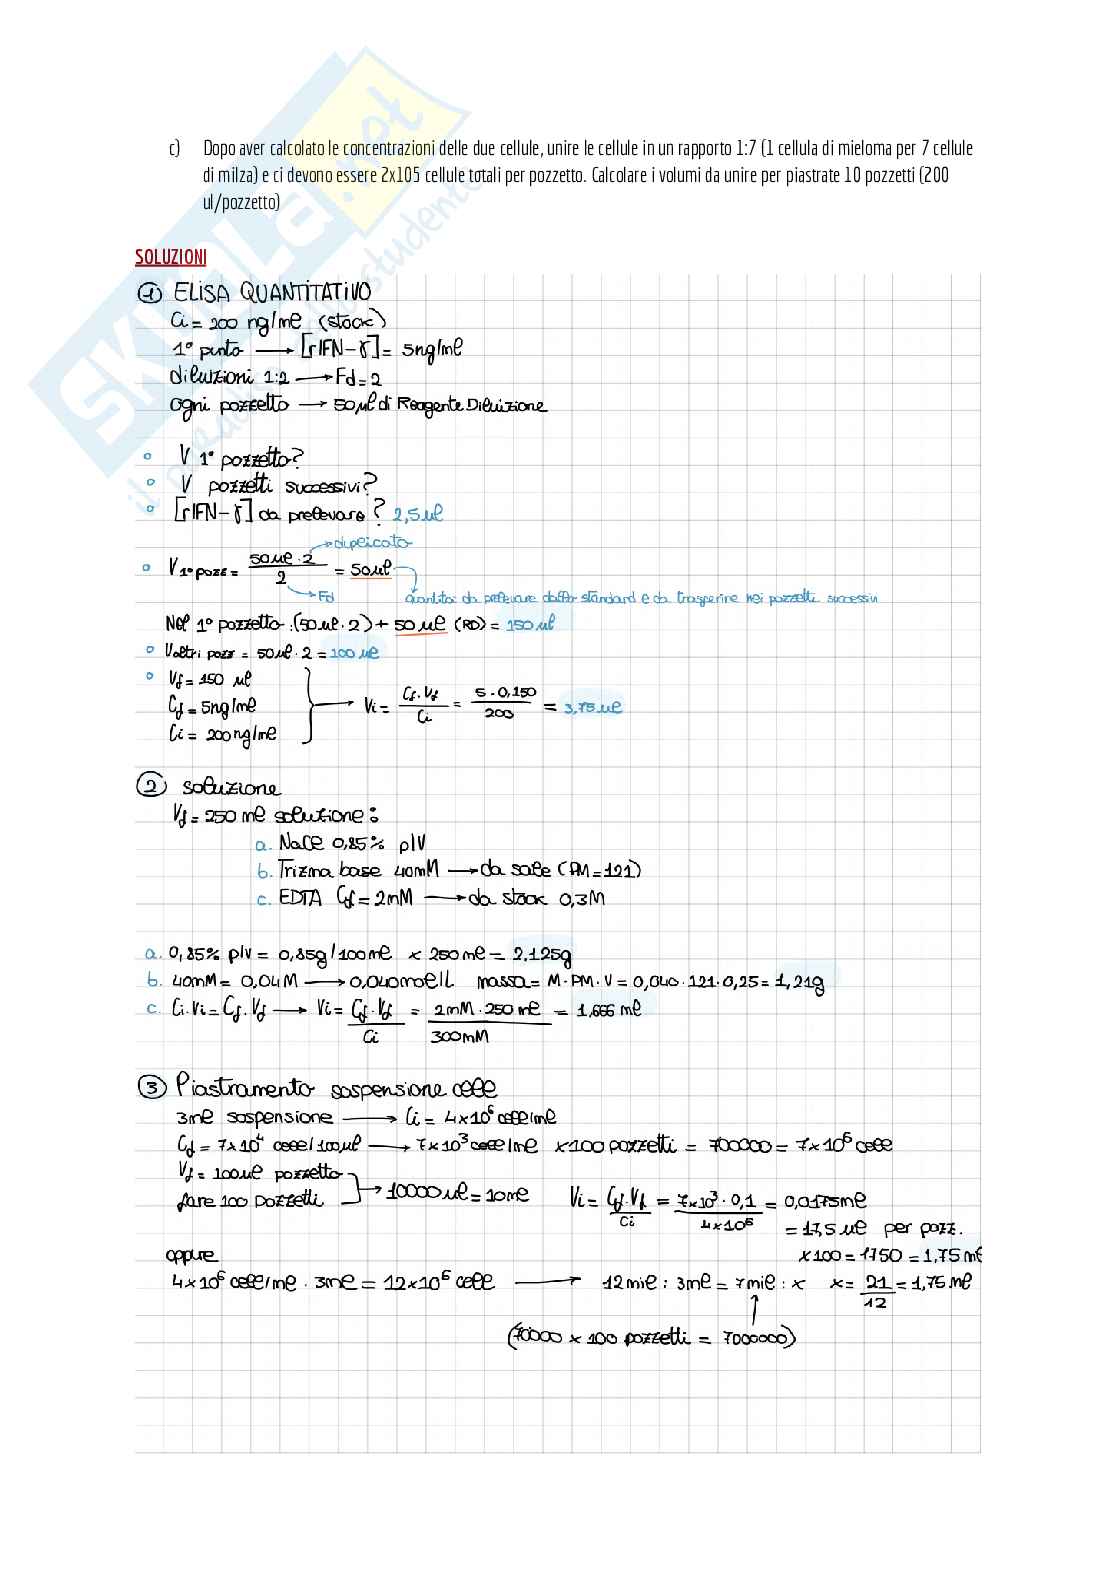 c) Dopo aver calcolato le concentrazioni delle due cellule, unire le cellule in un rapporto 1:7 (1 cellula di mieloma per 7 cellule
di milza) e ci devono essere 2x105 cellule totali per pozzetto. Calcolare i volumi da unire per piastrate 10 pozzetti (200
ul/pozzetto)
SOLUZIONI
① ELISA QUANTITATIVO
Ci = 200 ng/ml (stock)
1° punto → [rIFN-γ] = 5ng/ml
diluizioni 1:2 → Fd = 2
ogni pozzetto → 50 μl di Reagente Diluizione
V 1° pozzetto?
V pozzetti successivi?
[rIFN-γ] da prelevare? 2,5 μl
→ duplicato
V 1° pozz = 50 μl · 2 / 2 = 50 μl
→ Fd quantità da prelevare dallo standard e da trasferire nei pozzetti successivi
Nel 1° pozzetto: (50 μl · 2) + 50 μl (RD) = 150 μl
V altri pozz = 50 μl · 2 = 100 μl
Vf = 150 μl
Cf = 5ng/ml → Vi = Cf · Vf / Ci = 5 · 0,150 / 200 = 3,75 μl
Ci = 200 ng/ml
② soluzione
Vf = 250 ml soluzione:
a. NaCl 0,85% p/V
b. Trizma base 40mM → da sale (PM = 121)
c. EDTA Cf = 2mM → da stock 0,3M
a. 0,85% p/v = 0,85g/100ml x 250 ml = 2,125g
b. 40mM = 0,04 M → 0,040 mol/L massa = M · PM · V = 0,040 · 121 · 0,25 = 1,21g
c. Ci · Vi = Cf · Vf → Vi = Cf · Vf / Ci = 2mM · 250 ml / 300mM = 1,666 ml
③ Piastramento sospensione cell
3ml sospensione → Ci = 4x10⁶ cell/ml
Cf = 7x10⁴ cell/100 μl → 7x10³ cell/ml x100 pozzetti = 700000 = 7x10⁶ cell
Vf = 100 μl pozzetto
fare 100 pozzetti → 10000 μl = 10 ml Vi = Cf · Vf / Ci = 7x10³ · 0,1 / 4x10⁶ = 0,0175 ml
= 17,5 μl per pozz.
x100 = 1750 = 1,75 ml
oppure
4x10⁶ cell/ml · 3ml = 12x10⁶ cell → 12 mil : 3ml = 7mil : x x = 21 / 12 = 1,75 ml
(70000 x 100 pozzetti = 7000000)
SKUOLA.net